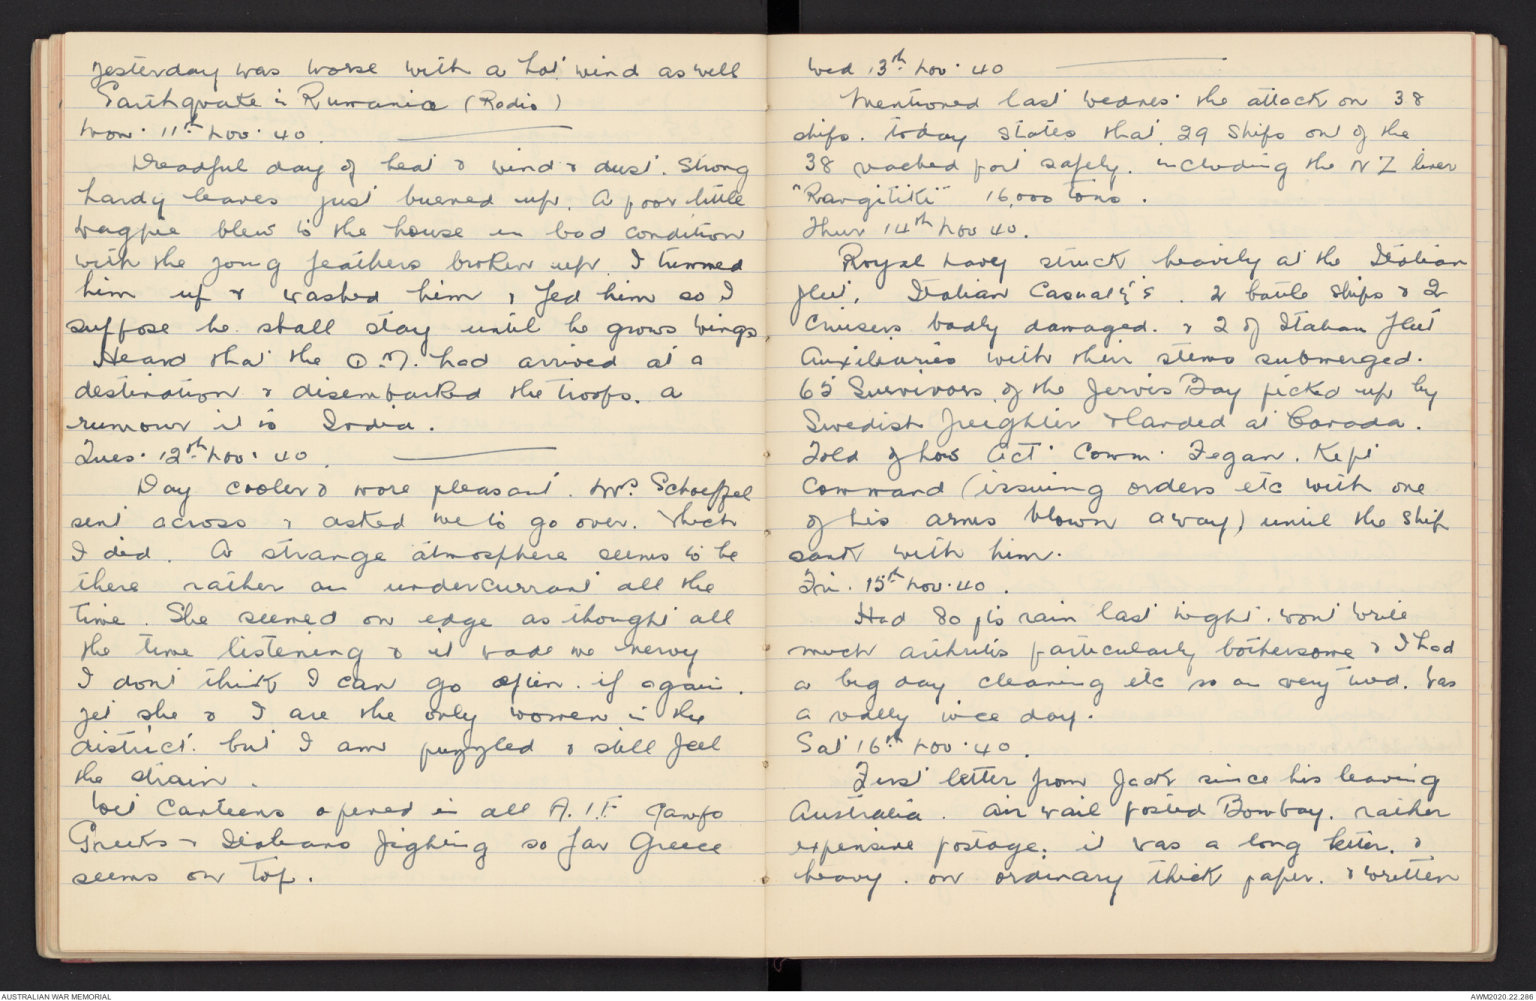 yesterday was worse with a hot wind as well
Earthquake in Rumania (Radio)
Mon. 11th Nov. 40.
Dreadful day of heat & wind & dust. Strong
hardy leaves just burned up. A poor little
magpie blew to the house in bad condition
with the young feathers broken up. I trimmed
him up & washed him & fed him so I
suppose he shall stay until he grows wings.
Heard that the Q.M. had arrived at a
destination & disembarked the troops. a
rumour it is India.
Tues. 12th Nov. 40.
Day cooler & more pleasant. Mrs Schoeffel
sent across & asked me to go over. Which
I did. A strange atmosphere seems to be
there rather an undercurrant all the
time. She seemed on edge as thought all
the time listening & it made me nervy
I don't think I can go often. if again.
yet she & I are the only women in the
district. but I am puzzled & still feel
the strain.
Wet Canteens opened in all A.I.F camps
Greeks & Italians fighting so far Greece
seems on top.
Wed 13th Nov. 40
Mentioned last Wednes. the attack on 38
ships. today states that 29 ships out of the
38 reached port safely. including the N Z liner
"Rangitiki" 16,000 tons.
Thur 14th Nov 40.
Royal Navy struck heavily at the Italian
fleet. Italian Casualty's. 2 battle ships & 2
Cruisers badly damaged. & 2 of Italian fleet
Auxiliaries with their stems submerged.
65 Survivors of the Jervis Bay picked up by
Swedish freighter & landed at Canada.
Told of how Act. Comm. Fegan. Kept
command (issuing orders etc with one
of his arms blown away) until the ship
sank with him.
Fri. 15th Nov. 40.
Had 80 pts rain last night. wont write
much arthritis particularly bothersome & I had
a big day cleaning etc so am very tired. Was
a really nice day.
Sat 16th Nov. 40.
First letter from Jack since his leaving
Australia. Air mail posted Bombay. rather
expensive postage. it was a long letter. &
heavy. on ordinary thick paper. & written
AUSTRALIAN WAR MEMORIAL
AWM2020.22.286